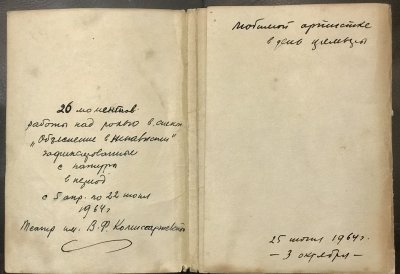 26 моментов
работы над ролью в спект.
„Объяснение в ненависти"
зафиксированные
с натуры
в период
с 5 апр. по 22 июня
1964 г.
Театр им. В.Ф. Комиссаржевской
любимой артистке
в день
25 июня 1964 г.
— 3 октября —